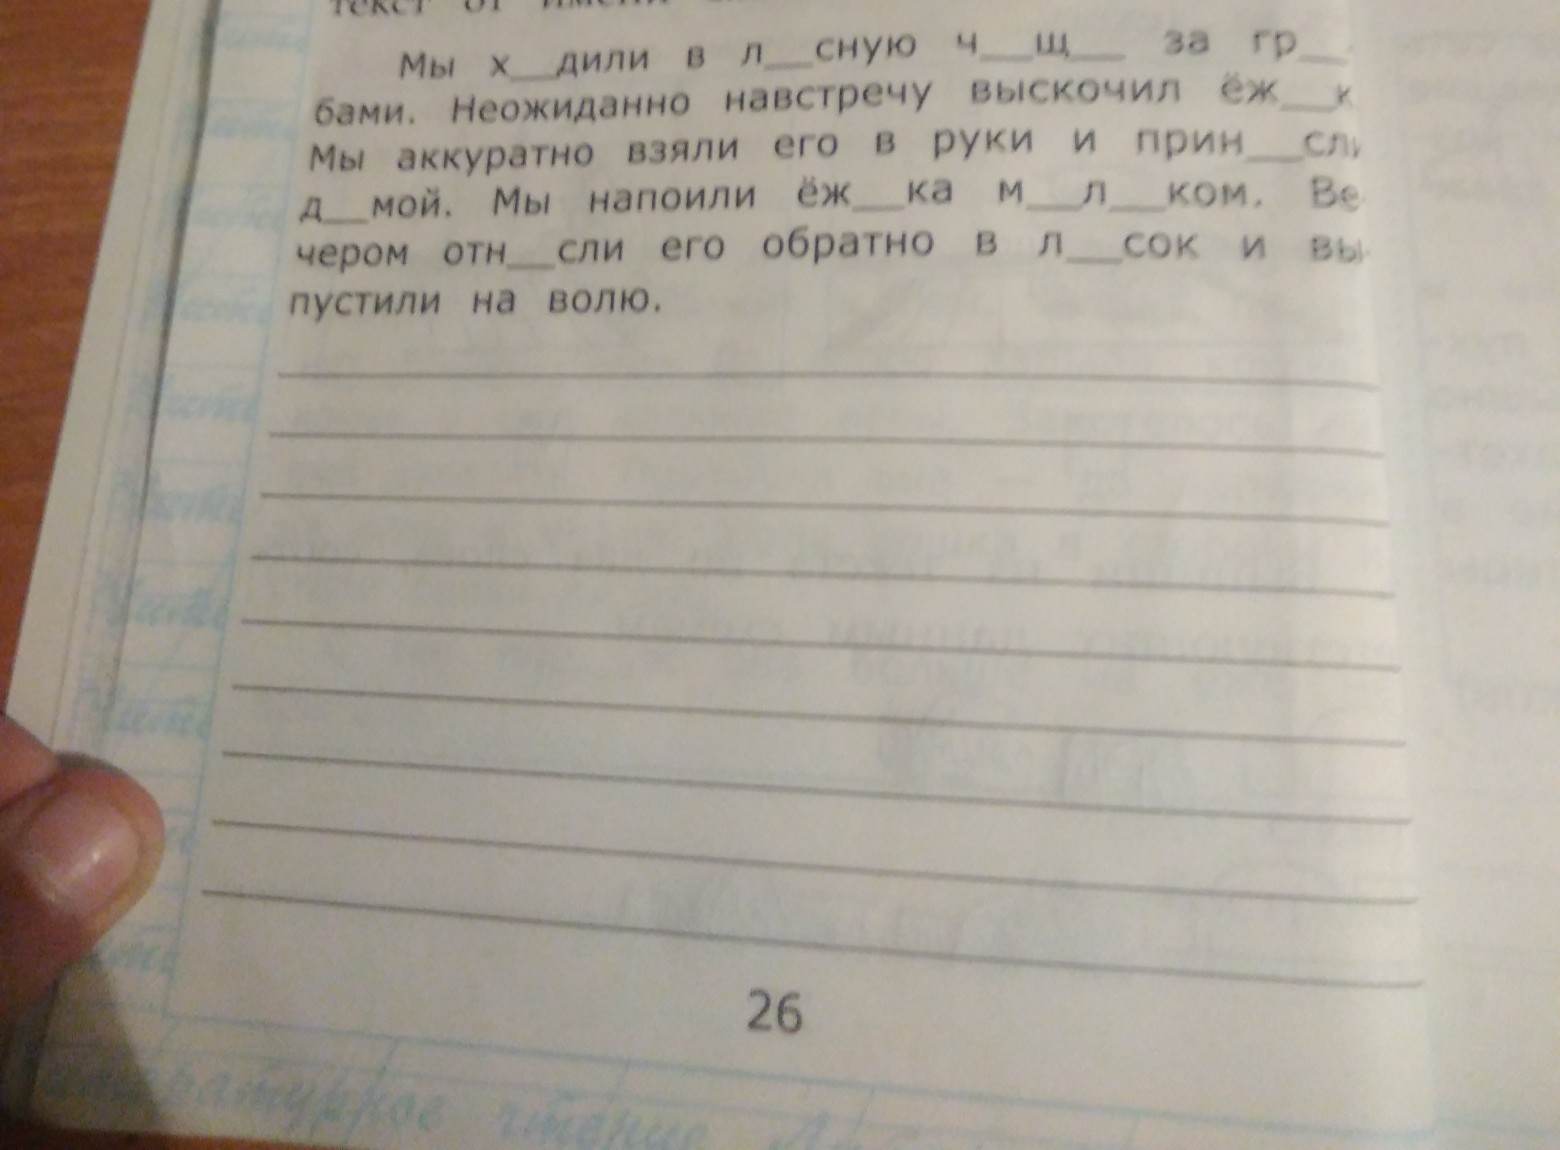 текст от имени
Мы х__дили в л__сную ч__щ__ за гр__
бами. Неожиданно навстречу выскочил ёж__к
Мы аккуратно взяли его в руки и прин__сли
д__мой. Мы напоили ёж__ка м__л__ком. Ве
чером отн__сли его обратно в л__сок и вы-
пустили на волю.
26
чтение